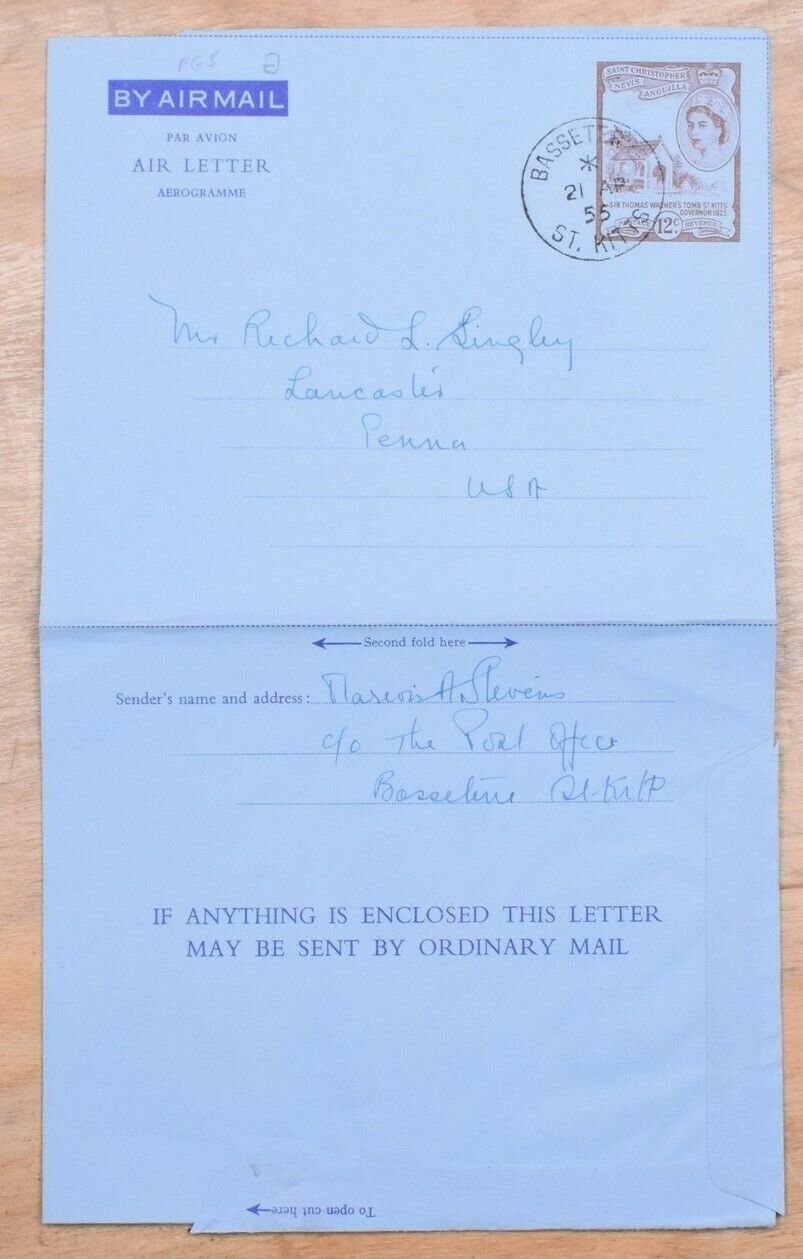 FGS
BY AIR MAIL
PAR AVION
AIR LETTER
AEROGRAMME
SAINT CHRISTOPHER
NEVIS
ANGUILLA
SIR THOMAS WARNER'S TOMB ST KITTS
GOVERNOR 1625
POSTAGE 12c. REVENUE
BASSETER
21 AP
55
ST. KITTS
Mr Richard L. Singley
Lancaster
Penna
USA
Second fold here
Sender's name and address: A. Stevens
c/o The Post Office
Basseterre St Kitts
IF ANYTHING IS ENCLOSED THIS LETTER
MAY BE SENT BY ORDINARY MAIL
To open cut here